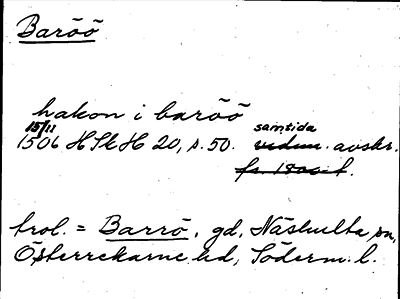 Baröö
hakon i baröö
15/11
samtida
1506 HSkH 20, s. 50. vidim. avskr.
fr. 1500-t.
trol. = Barrö, gd, Näshulta sn,
Österrekarne hd, Söderm. l.